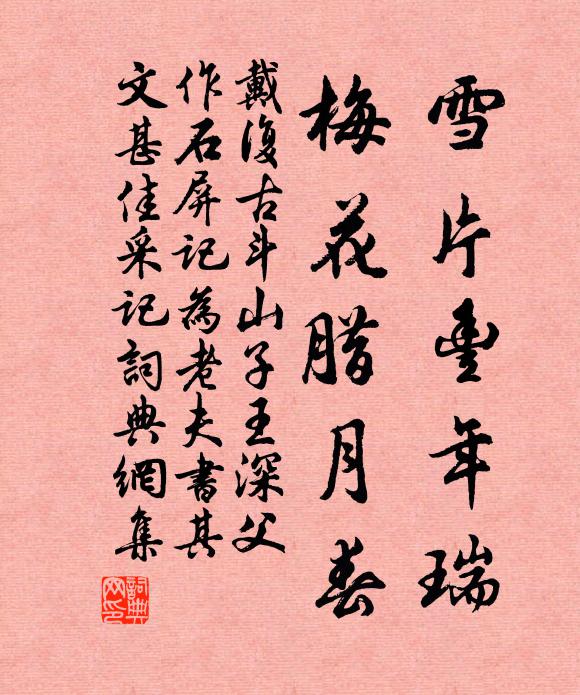 雪片豐年瑞
梅花腊月春
戴復古斗山子王深父
作石屏記為老夫書其
文甚佳采記詞典網集
詞典网印